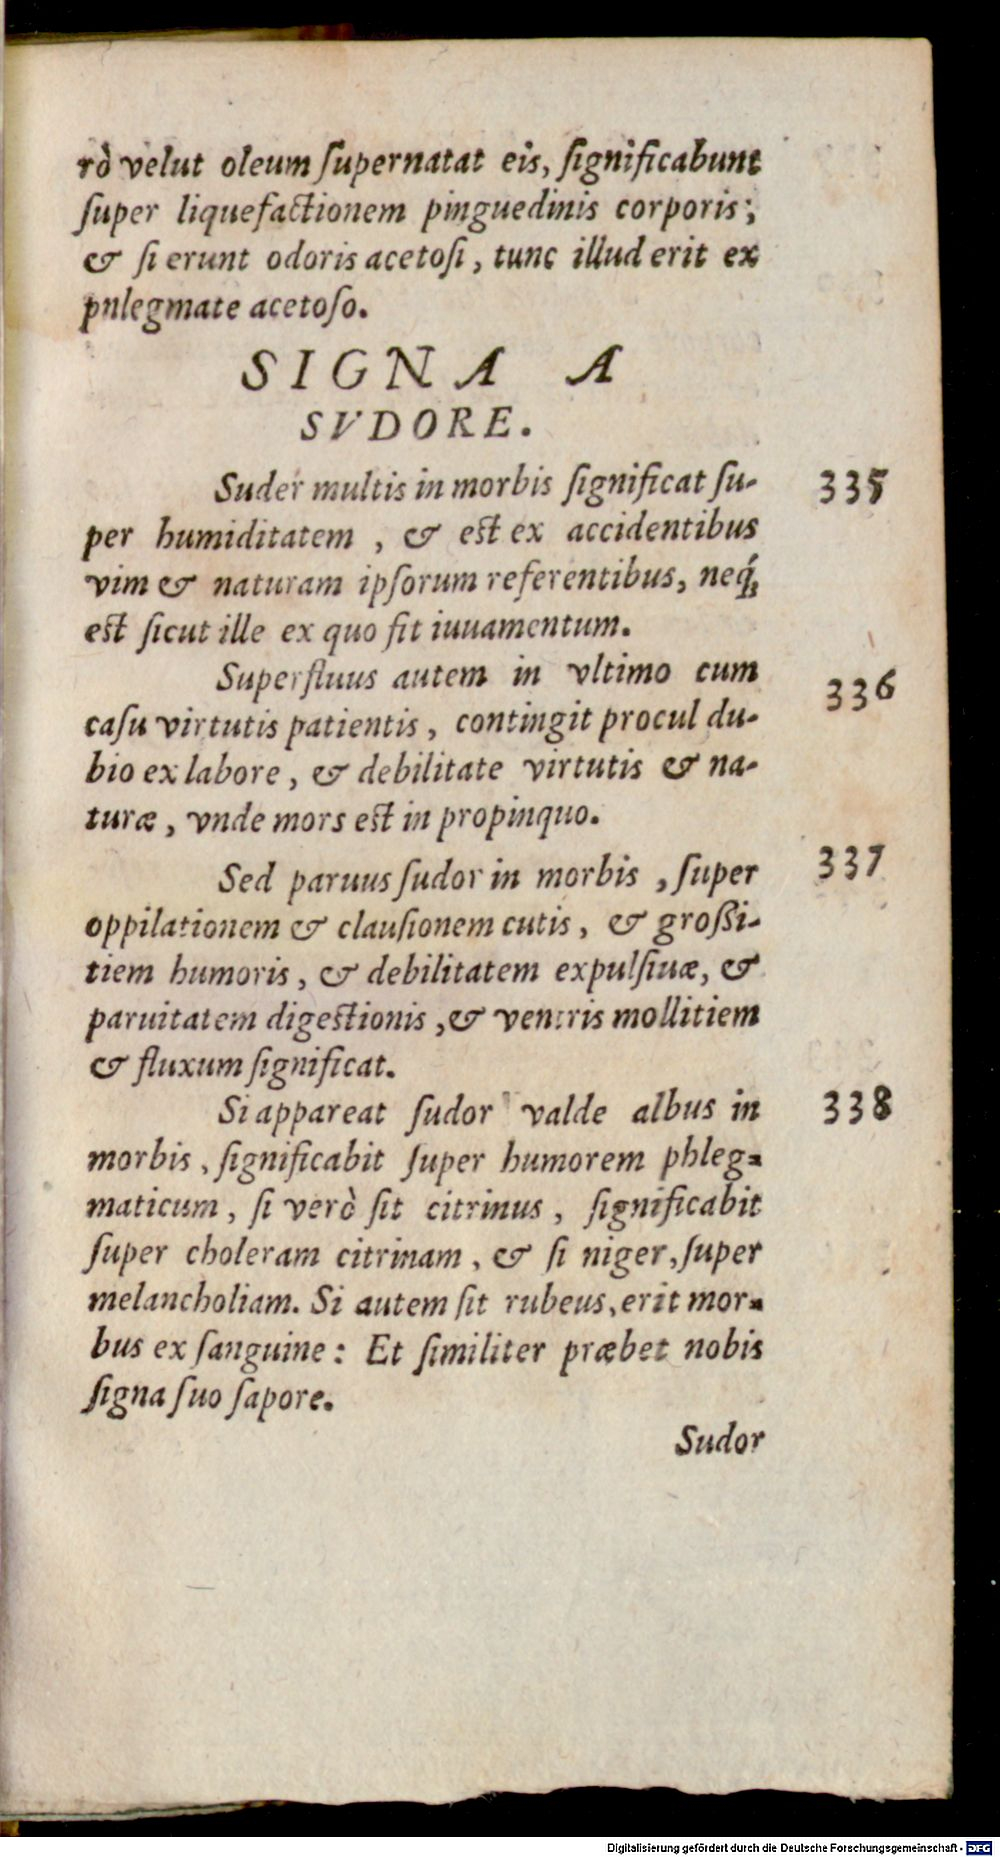 rò velut oleum ſupernatat eis, ſignificabunt
ſuper liquefactionem pinguedinis corporis;
& ſi erunt odoris acetoſi, tunc illud erit ex
phlegmate acetoſo.
SIGNA A
SVDORE.
Suder multis in morbis ſignificat ſu- 335
per humiditatem, & eſt ex accidentibus
vim & naturam ipſorum referentibus, neq́;
eſt ſicut ille ex quo fit iuuamentum.
Superfluus autem in vltimo cum 336
caſu virtutis patientis, contingit procul du-
bio ex labore, & debilitate virtutis & na-
turæ, vnde mors eſt in propinquo.
Sed paruus ſudor in morbis, ſuper 337
oppilationem & clauſionem cutis, & groſſi-
tiem humoris, & debilitatem expulſiuæ, &
paruitatem digeſtionis, & ventris mollitiem
& fluxum ſignificat.
Si appareat ſudor valde albus in 338
morbis, ſignificabit ſuper humorem phleg-
maticum, ſi verò ſit citrinus, ſignificabit
ſuper choleram citrinam, & ſi niger, ſuper
melancholiam. Si autem ſit rubeus, erit mor-
bus ex ſanguine: Et ſimiliter præbet nobis
ſigna ſuo ſapore.
Sudor
Digitalisierung gefördert durch die Deutsche Forschungsgemeinschaft - DFG